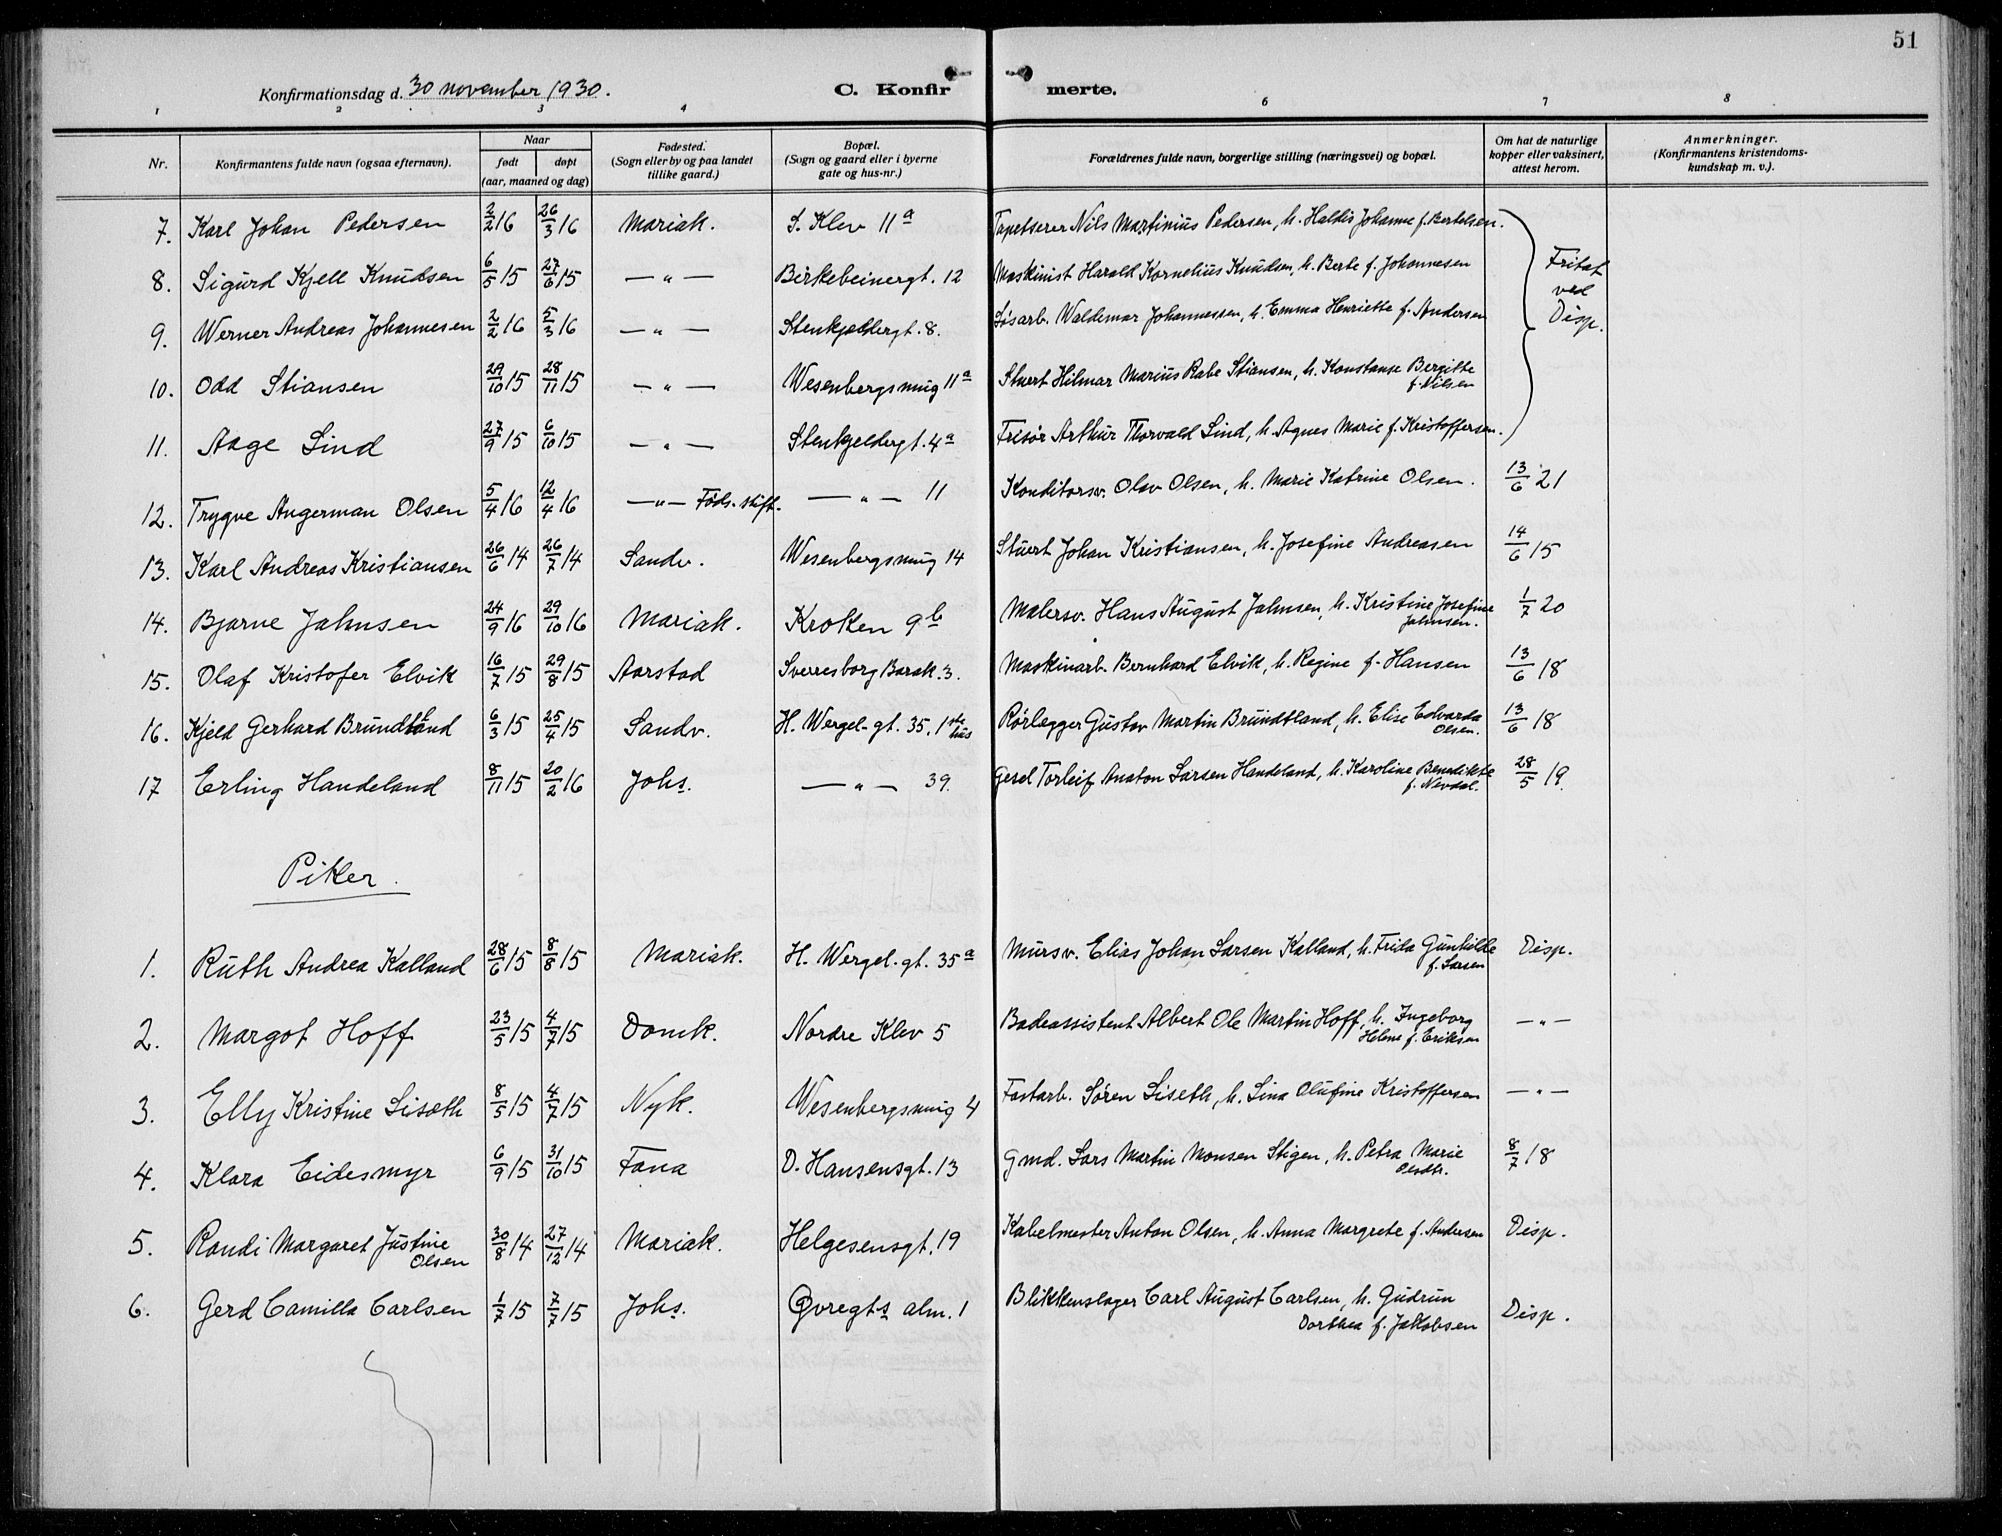 51
Konfirmationsdag d. 30 november 1930.
C. Konfirmerte.
1 2 3 4 6 7 8
Nr. Konfirmantens fulde navn (ogsaa efternavn). Naar født døpt (aar, maaned og dag) Fødested. (Sogn eller by og paa landet tillike gaard.) Bopæl. (Sogn og gaard eller i byerne gate og hus-nr.) Forældrenes fulde navn, borgerlige stilling (næringsvei) og bopæl. Om hat de naturlige kopper eller vaksinert, attest herom. Anmerkninger. (Konfirmantens kristendoms-kundskap m. v.).
7. Karl Johan Pedersen 2/2 16 26/3 16 Mariak. S. Klev 11a Tapetserer Nils Martinius Pedersen, h. Haldis Johanne f. Bertelsen. Fritat ved Disp.
8. Sigurd Kjell Knudsen 6/5 15 27/6 15 — " — Birkebeinergt. 12 Maskinist Harald Kornelius Knudsen, h. Berte f. Johannesen
9. Werner Andreas Johannesen 2/2 16 5/3 16 — " — Stenkjeldergt. 8. Løsarb. Waldemar Johannessen, h. Emma Henriette f. Andersen
10. Odd Stiansen 29/10 15 28/11 15 — " — Wesenbergsmug 11a Stuert Hilmar Marius Rabe Stiansen, h. Konstanse Bergitte f. Nilsen
11. Aage Lind 27/9 15 6/10 15 — " — Stenkjeldergt. 4a Frisør Arthur Thorvald Lind, h. Agnes Marie f. Kristoffersen.
12. Trygve Angerman Olsen 5/4 16 12/4 16 — " — Føds. stift. — " — 11 Konditorsv. Olav Olsen, h. Marie Katrine Olsen. 13/6 21
13. Karl Andreas Kristiansen 26/6 14 26/7 14 Sandv. Wesenbergsmug 14 Stuert Johan Kristiansen, h. Josefine Andreasen 14/6 15
14. Bjarne Jahnsen 24/9 16 29/10 16 Mariak. Kroken 9b Malersv. Hans August Jahnsen, h. Kristine Josefine Jahnsen. 1/7 20
15. Olaf Kristofer Elvik 16/7 15 29/8 15 Aarstad Sverresborg Barak. 3. Maskinarb. Bernhard Elvik, h. Regine f. Hansen 13/6 18
16. Kjeld Gerhard Brundtland 6/3 15 25/4 15 Sandv. H. Wergel. gt. 35, 1ste hus Rørlegger Gustav Martin Brundtland, h. Elise Edvarda Olsen. 13/6 18
17 Erling Handeland 8/11 15 20/2 16 Johs. — " — 39. Gesel Torleif Anaton Larsen Handeland, h. Karoline Benedikte f. Nevdal. 28/5 19.
Piker.
1. Ruth Andrea Kalland 28/6 15 8/8 15 Mariak. H. Wergel. gt. 35a Mursv. Elias Johan Larsen Kalland, h. Frida Gunhilde f. Larsen Disp.
2. Margot Hoff 23/5 15 4/7 15 Domk. Nordre Klev 5 Badeassistent Albert Ole Martin Hoff, h. Ingeborg Helene f. Eriksen — " —
3. Elly Kristine Lisæth 8/5 15 4/7 15 Nyk. Wesenbergsmug 4 Fastarb. Søren Liseth, h. Lina Olufine Kristoffersen — " —
4. Klara Eidesmyr 6/9 15 31/10 15 Fana D. Hansensgt. 13 Gmd. Lars Martin Monsen Stigen, h. Petra Marie Olsdtr. 8/7 18
5. Randi Margaret Justine Olsen 30/8 14 27/12 14 Mariak. Helgesensgt. 19 Kabelmester Anton Olsen, h. Anna Margrete f. Andersen Disp.
6. Gerd Camilla Carlsen 1/7 15 7/7 15 Johs. Øvregts alm. 1 Blikkenslager Carl August Carlsen, h. Gudrun Dorthea f. Jakobsen Disp.